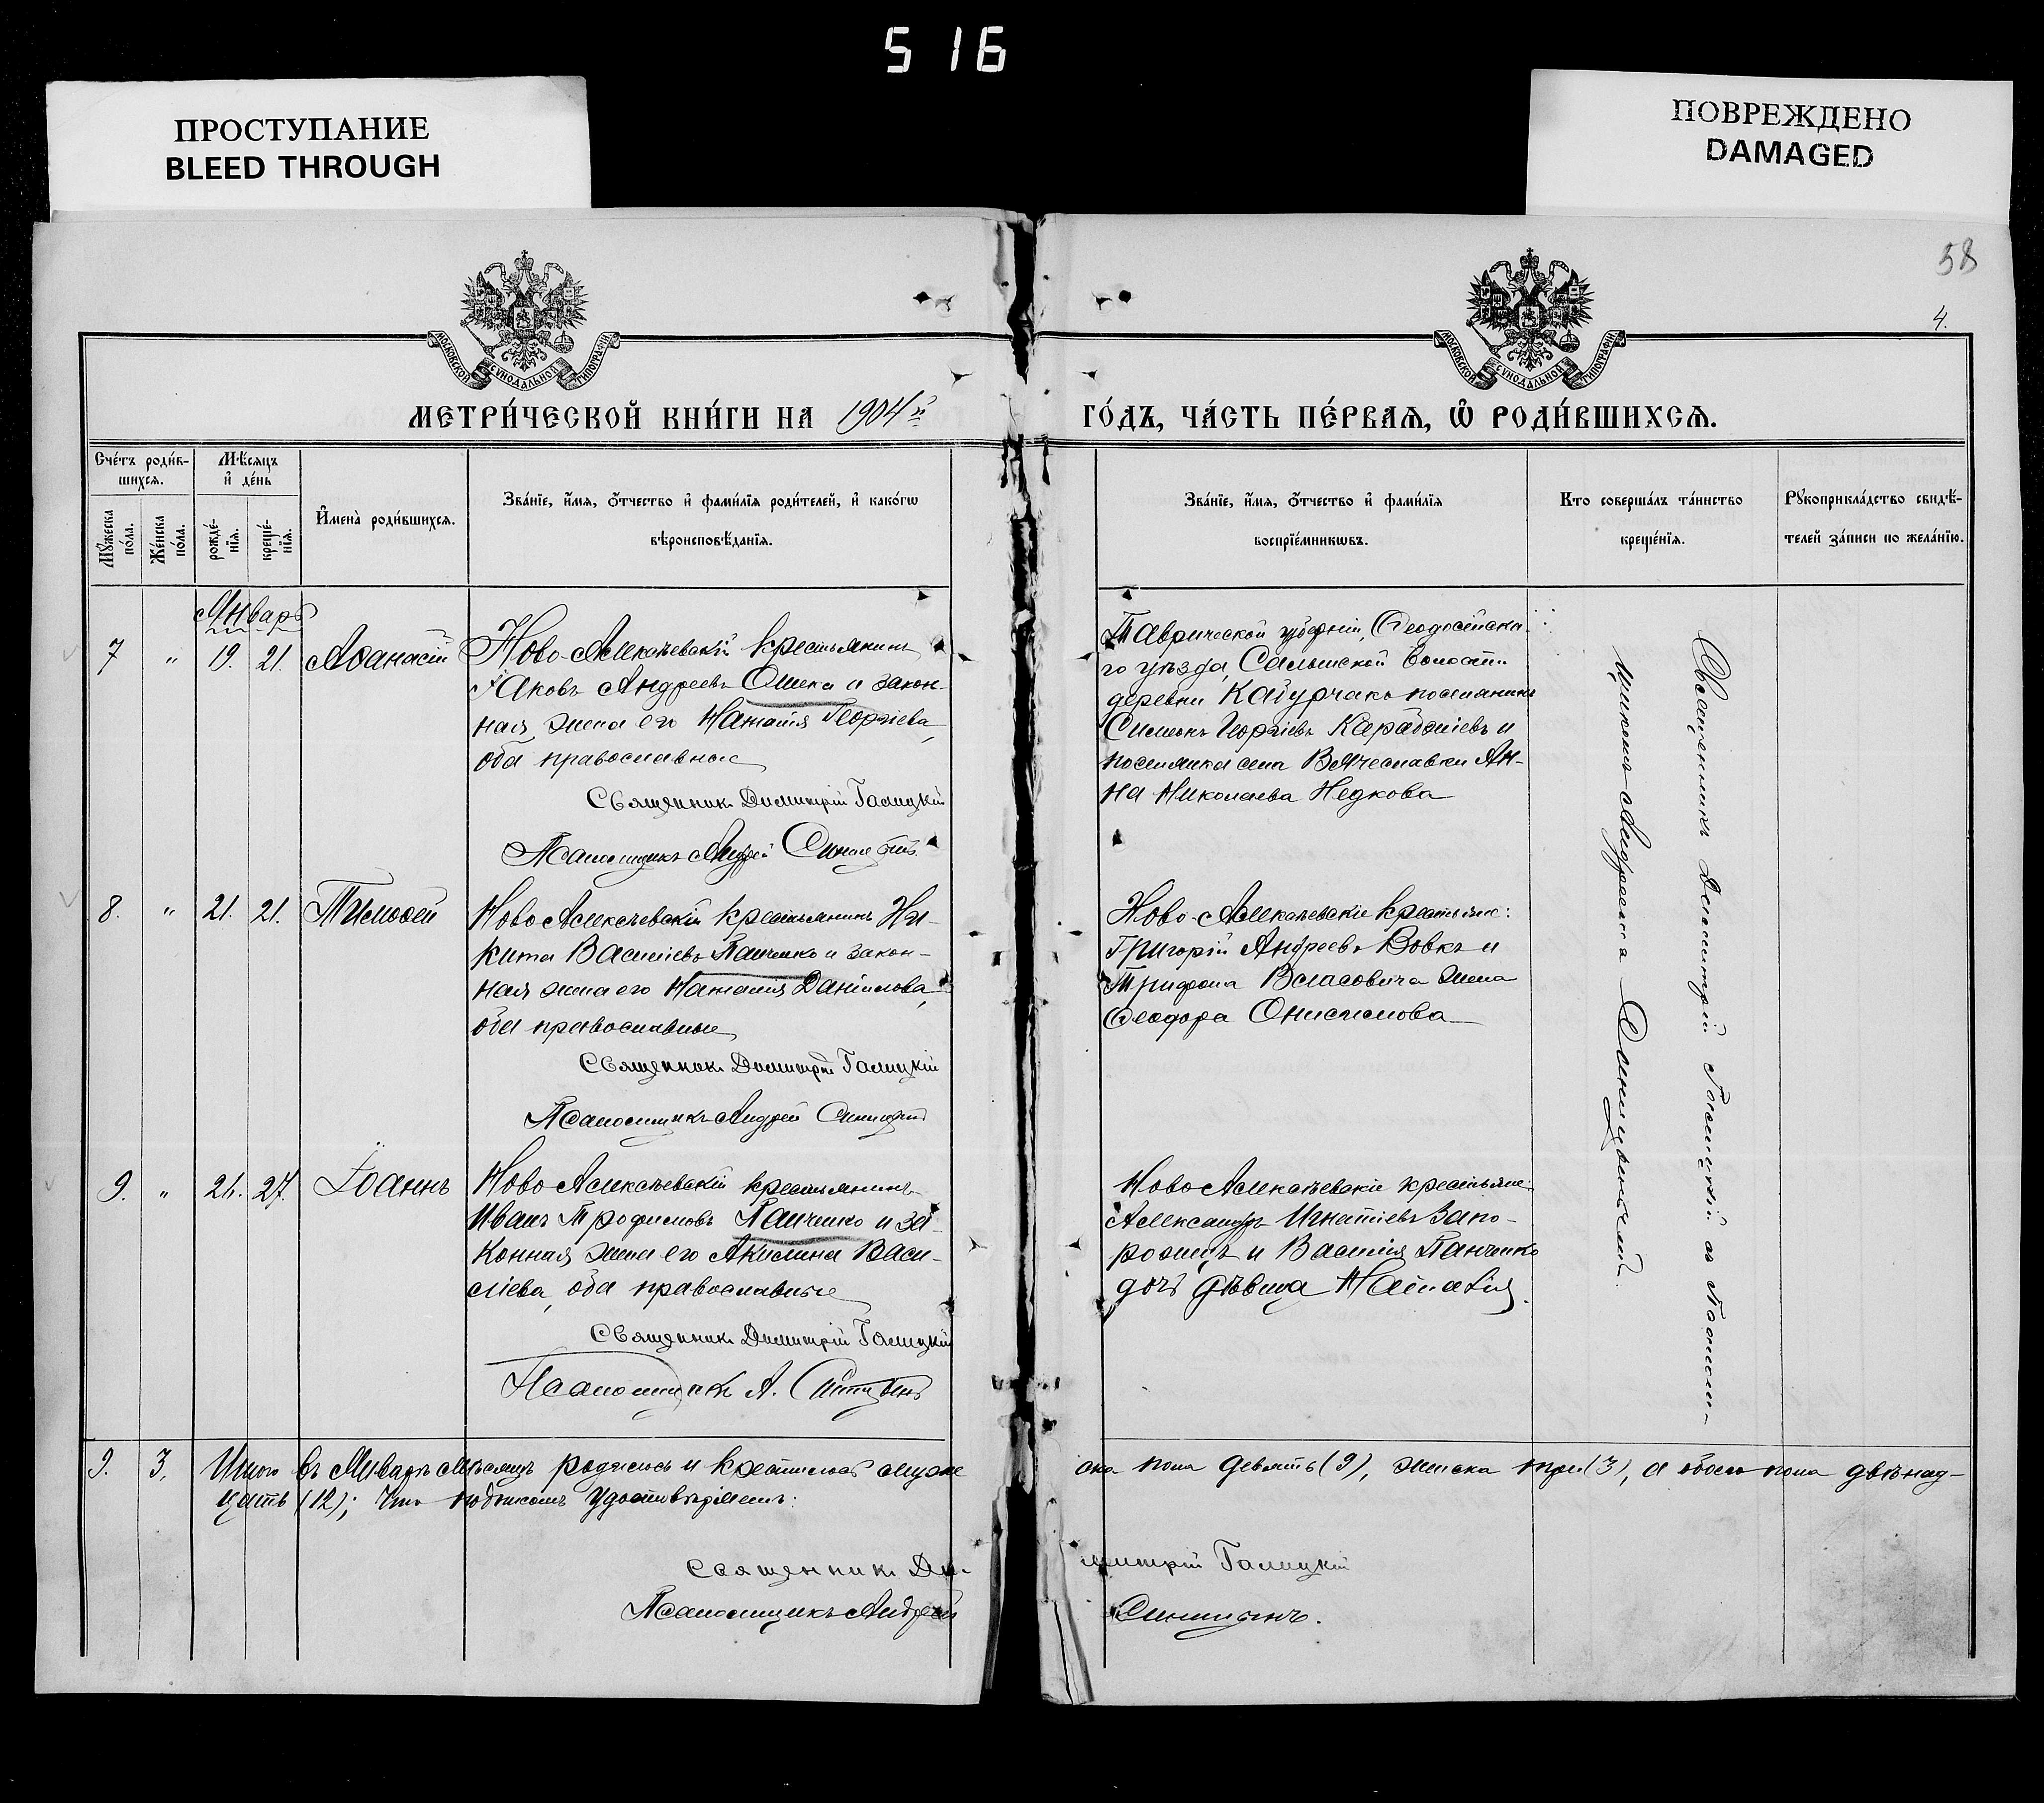 516
ПРОСТУПАНИЕ
BLEED THROUGH
ПОВРЕЖДЕНО
DAMAGED
58
4.
МОСКОВСКОЙ СѴНОДАЛЬНОЙ ТИПОГРАФІИ
МОСКОВСКОЙ СѴНОДАЛЬНОЙ ТИПОГРАФІИ
МЕТРИ́ЧЕСКОЙ КНИ́ГИ НА 1904й ГО́ДЪ, ЧА́СТЬ ПЕ́РВАЯ, Ѽ РОДИ́ВШИХСЯ.
Сче́тъ роди́в-
шихся.
Мѣ́сяцъ
и҆ де́нь
Му́жеска
по́ла.
Же́нска
по́ла.
рожде́-
нїя.
креще́-
нїя.
И҆мена̀ роди́вшихся.
Зва́нїе, и҆́мя, ѻ҆́тчество и҆ фами́лїя роди́телей, и҆ како́гѡ
вѣроисповѣ́данїя.
Зва́нїе, и҆́мя, ѻ҆́тчество и҆ фами́лїя
воспрїе́мникѡвъ.
Кто соверша́лъ та́инство
креще́нїя.
Рꙋкоприкла́дство свидѣ́-
телей за́писи по жела́нїю.
Январь
7 " 19. 21. Аѳанасій
Ново-Алексѣевскій крестьянинъ
Іаковъ Андреевъ Олека и закон-
ная жена его Наталія Георгіева,
оба православные
Священникъ Димитрій Галицкій
Псаломщикъ Андрей Синицынъ.
Таврической губерніи, Ѳеодосійска-
го уѣзда, Салынской волости
деревни Кабурчакъ поселянинъ
Симеонъ Георгіевъ Карабаджіевъ и
поселянка села Вячеславки Ан-
на Николаева Недкова
8. " 21. 21. Тимоѳей
Ново Алексѣевскій крестьянинъ Ни-
кита Василіевъ Панченко и закон-
ная жена его Наталія Даніилова,
оба православные
Священникъ Димитрій Галицкій
Псаломщикъ Андрей Синицынъ
Ново-Алексѣевскіе крестьяне:
Григорій Андреевъ Вовкъ и
Трифона Власовича жена
Ѳеодора Онисимова
9. " 26. 27. Іоаннъ
Ново Алексѣевскій крестьянинъ
Иванъ Трофимовъ Панченко и за-
конная жена его Акилина Васи-
ліева, оба православные
Священникъ Димитрій Галицкій
Псаломщикъ А. Синицынъ
Ново Алексѣевскіе крестьяне:
Александръ Игнатіевъ Запо-
рожецъ и Василія Панченко
дочь дѣвица Наталія.
Священникъ Димитрій Галицкій съ Псалом-
щикомъ Андреемъ Синицынымъ.
9. 3. Итого въ Январѣ мѣсяцѣ родилось и крестилось муже
ска пола девять (9), женска три (3), а обоего пола двѣнад-
цать (12); что подписомъ удостовѣряемъ:
Священникъ Димитрій Галицкій
Псаломщикъ Андрей Синицынъ.